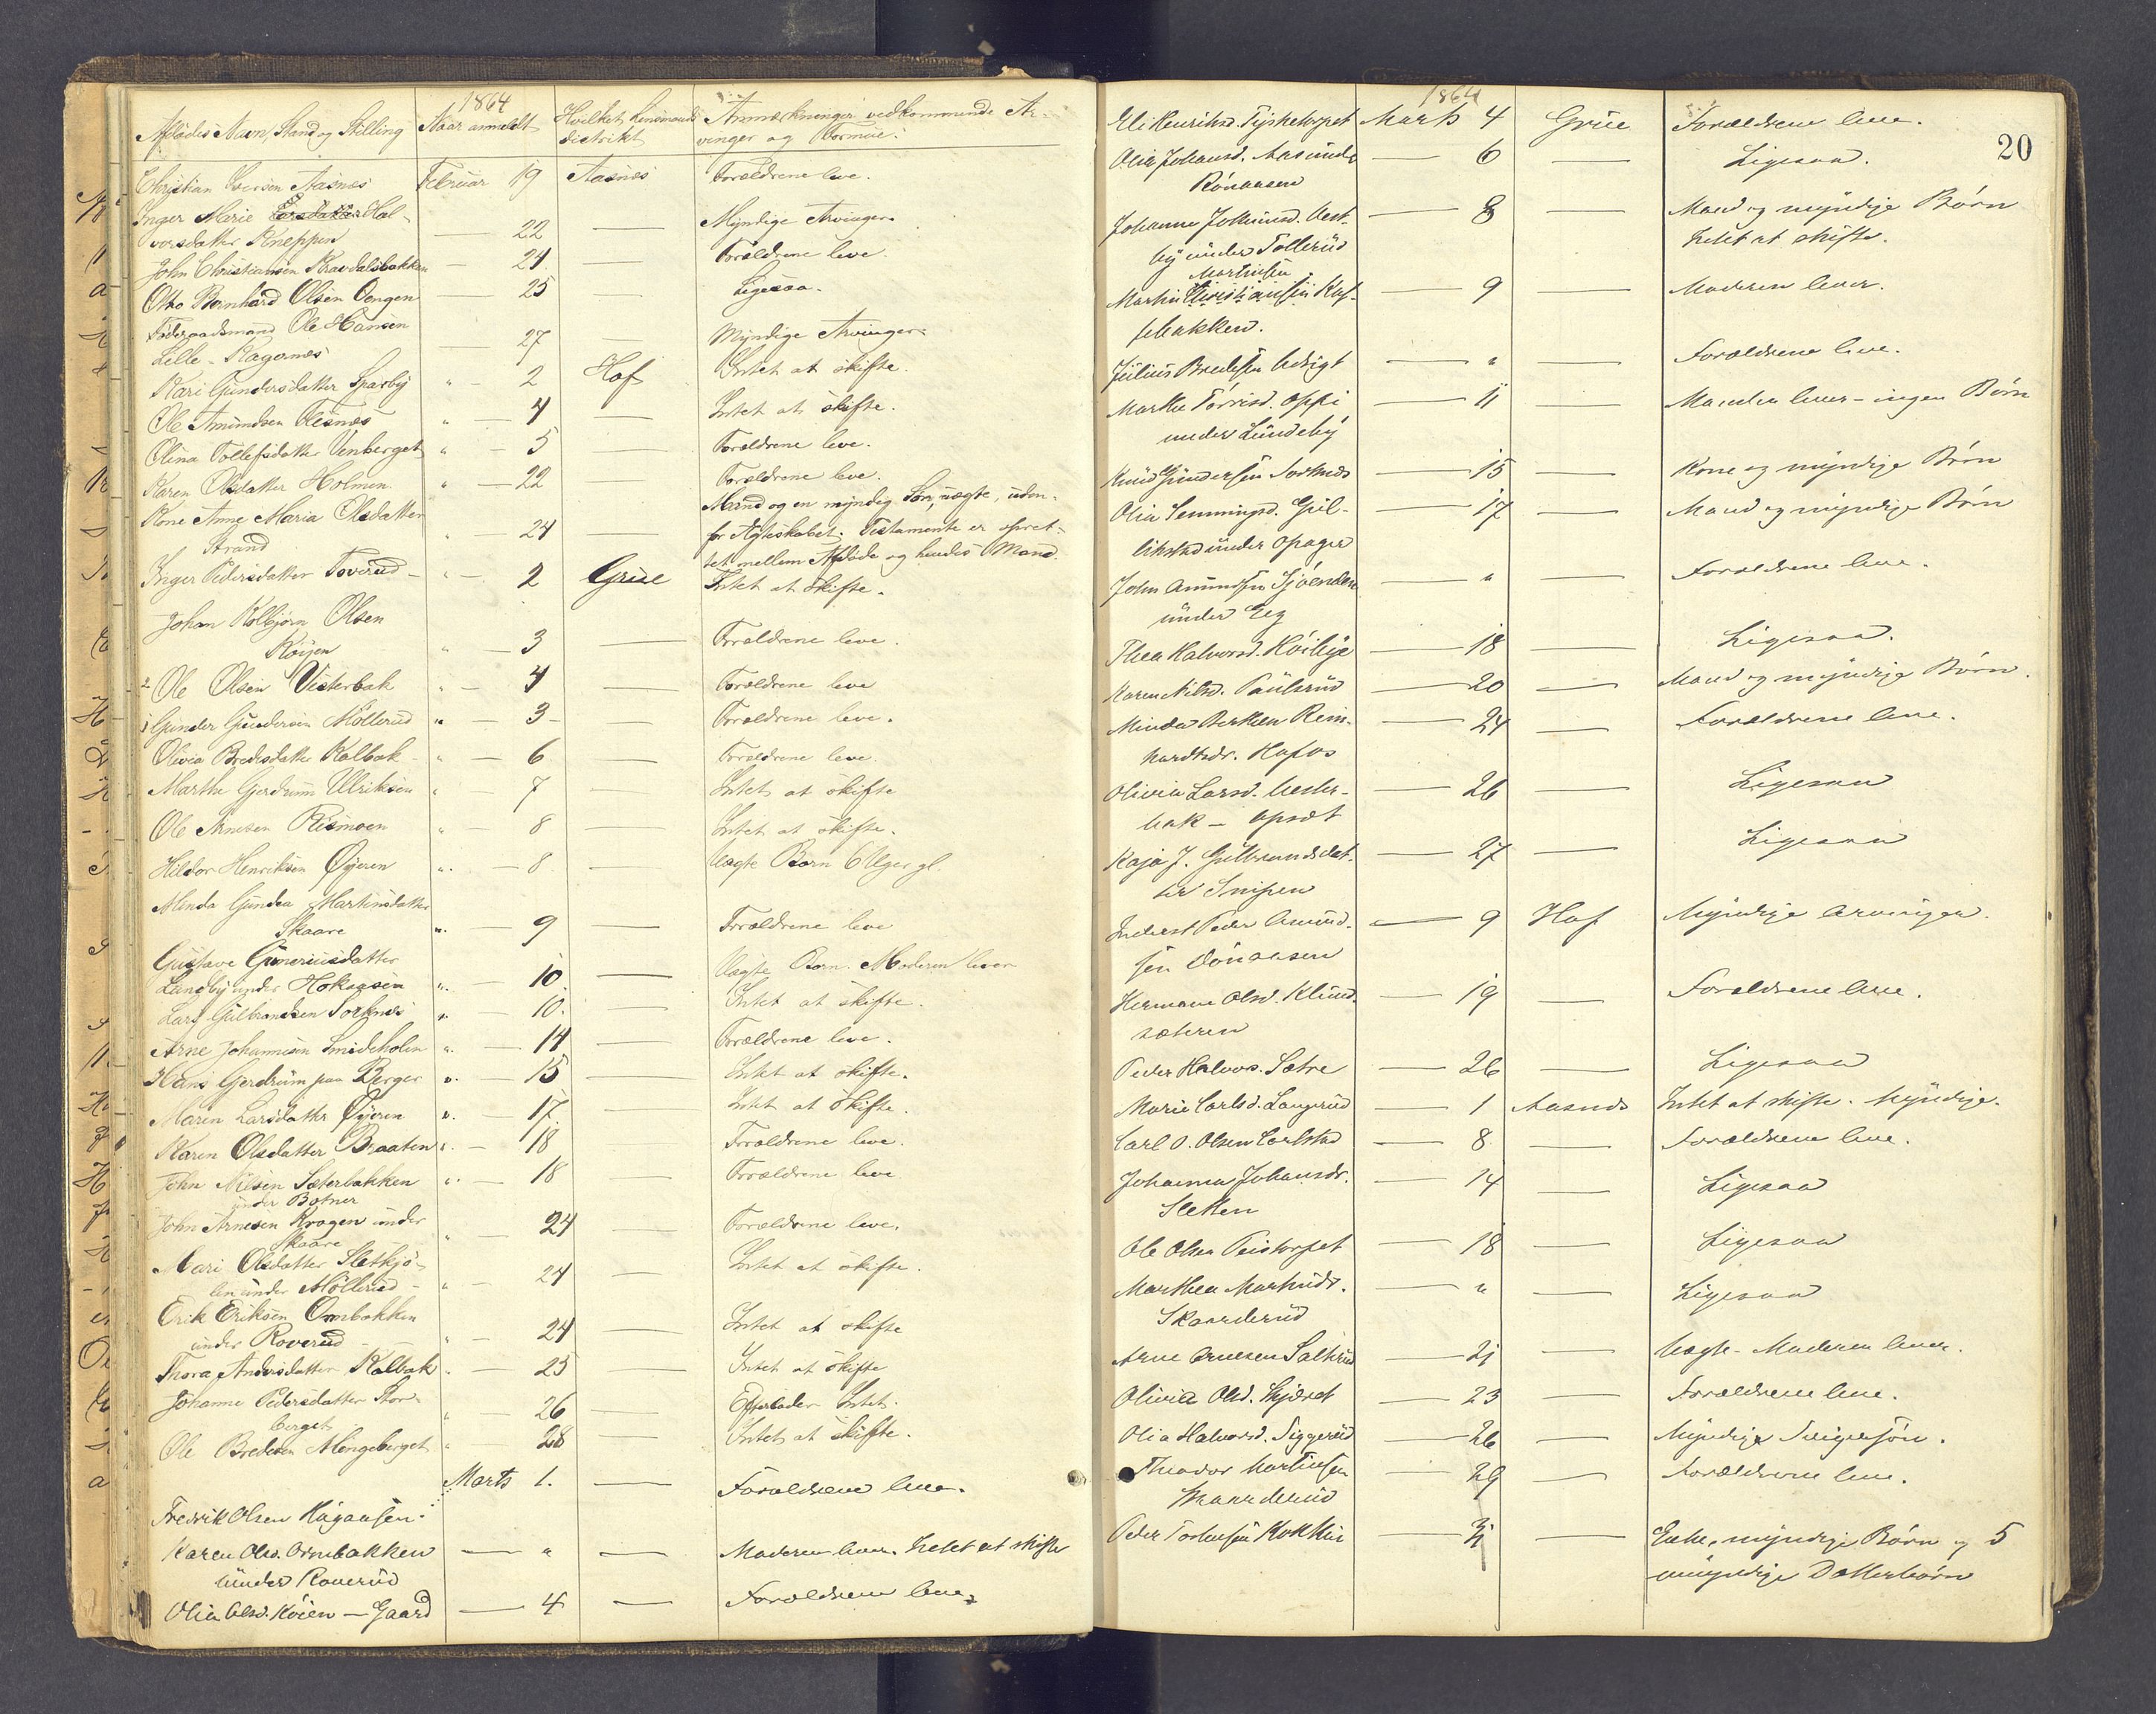 1864
Afdødes Navn, Stand og Stilling Naar anmeldt Hvilket Lensmands distrikt Anmærkninger vedkommende Ar-
vinger og Formue.
Christian Iversen Aasnæs Februar 19 Aasnæs Forældrene leve.
Inger Marie Larsdatter Hal-
vorsdatter Kneppen — 22 — Myndige Arvinger.
John Christiansen Kravdalsbakken — 24 — Forældrene leve.
Otto Bernhard Olsen Oengen — 25 — Ligesaa.
Föderaadsmand Ole Hansen
Lille-Kagonæs — 27 — Myndige Arvinger.
Kari Gundersdatter Sparby " — 2 Hof Intet at skifte.
Ole Amundsen Flisnæs " — 4 — Intet at skifte.
Olina Tollefsdatter Venberget " — 5 Forældrene leve.
Karen Olsdatter Holmen " — 22 Forældrene leve.
Kone Anne Maria Olsdatter
Strand " — 24 — Mand og en myndig Søn, uægte, uden-
for Ægteskabet. Testamente er opret-
tet mellem Afdøde og hendes Mand.
Inger Pedersdatter Toverud " — 2 Grue Intet at skifte.
Johan Kolbjørn Olsen
Köijen " — 3 — Forældrene leve.
2 Ole Olsen Vesterbak " — 4 — Forældrene leve
1 Gunder Gundersen Möllerud " — 3 — Forældrene leve.
Olivia Bredesdatter Kalbak " — 6 — Forældrene leve.
Marthe Gjerdrum Ulriksen " — 7 — Intet at skifte
Ole Arnesen Rismoen " — 8 — Intet at skifte.
Hildor Henriksen Øyeren " — 8 — Uægte Barn 6 Uger gl.
Minda Gundea Martinsdatter
Skaare " — 9 — Forældrene leve
Gustave Guneriusdatter
Lundby under Hokaasen " — 10. — Uægte Barn. Moderen lever
Lars Gulbrandsen Sorknæs " — 10. — Intet at skifte.
Arne Johannesen Smideholen " — 14 — Forældrene leve.
Hans Gjerdrum paa Berger " — 15 — Intet at skifte.
Maren Larsdatter Øyeren " — 17 — Intet at skifte.
Karen Olsdatter Braaten " — 18 — Forældrene leve.
John Nilsen Sæterbakken
under Botner " — 18 — Forældrene leve
John Arnesen Krogen under
Skaare " — 24 — Forældrene leve.
Mari Olsdatter Sletkjö-
len under Möllerud " — 24 — Intet at skifte.
Erik Eriksen Ombakken
under Roverud " — 24 — Intet at skifte
Thora Andersdatter Kalbak " — 25 — Intet at skifte
Johanne Pedersdatter Stor-
berget " — 26 — Efterlader Intet.
Ole Bredesen Mengeberget " — 28 — Intet at skifte.
Fredrik Olsen Hagaasen Marts 1. — Forældrene leve.
Karen Olsd. Ombakken
under Roverud — " — Moderen lever. Intet at skifte
Olia Olsd. Köien — Gaard — 4 — Forældrene leve.
1864
20
Eli Henriksd. Tysketorpet Marts 4 Grue Forældrene leve.
Olia Johansd. Aasunde
Rönaasen — 6 — Ligesaa.
Johanne Johansd. Vest-
by under Tollerud — 8 — Mand og myndige Børn
Intet at skifte.
Martinsen
Martin Christiansen Kas-
sebakken. — 9 — Moderen lever.
Julius Bredesen Utrigt — " — Forældrene leve.
Marthe Torrisd. Oppi
under Lundeby — 11 — Manden lever - ingen Børn
Knud Gundersen Sorknæs — 15 — Kone og myndige Børn
Olia Semmingsd. Gul-
likstad under Opager — 17 — Mand og myndige Børn
John Amundsen Tjöenden
under Eeg — " — Forældrene leve.
Thea Halvorsd. Höibye — 18 — Ligesaa.
Karen Nilsd. Paulsrud — 20 — Mand og myndige Børn.
Minda Berthea Rein-
hardtsdr. Hafos — 24 — Forældrene leve.
Olivia Larsd. Vester-
bak — Opsæt — 26 — Ligesaa
Kaja J. Gulbrandsdat-
ter Snipen — 27 — Ligesaa
Inderst Peder Amund-
sen Dönaasen — 9 Hof Myndige Arvinger.
Hermane Olsd. Klund-
sæteren — 19 — Forældrene leve.
Peder Halvors. Sætre — 26 — Ligesaa
Marie Carlsd. Langerud — 1 Aasnæs Intet at skifte. Myndige.
Carl O. Olsen Carlstad — 8 — Forældrene leve.
Johanna Johansdr.
Sletten — 14 — Ligesaa
Ole Olsen Peistorpet — 18 — Ligesaa
Marthea Martinsdr.
Skaarderud — " — Ligesaa
Arne Arnesen Salterud — 21 — Uægte - Moderen lever.
Olivia Olsd. Skjæret — 23 — Forældrene leve.
Olia Halvorsd. Siggerud — 26 — Myndige Svigersøn.
Theodor Martinsen
Skaarderud — 29 — Forældrene leve.
Peder Torkelsen Kokkin — 31 — Enke, myndige Børn og 5
umyndige Datterbørn